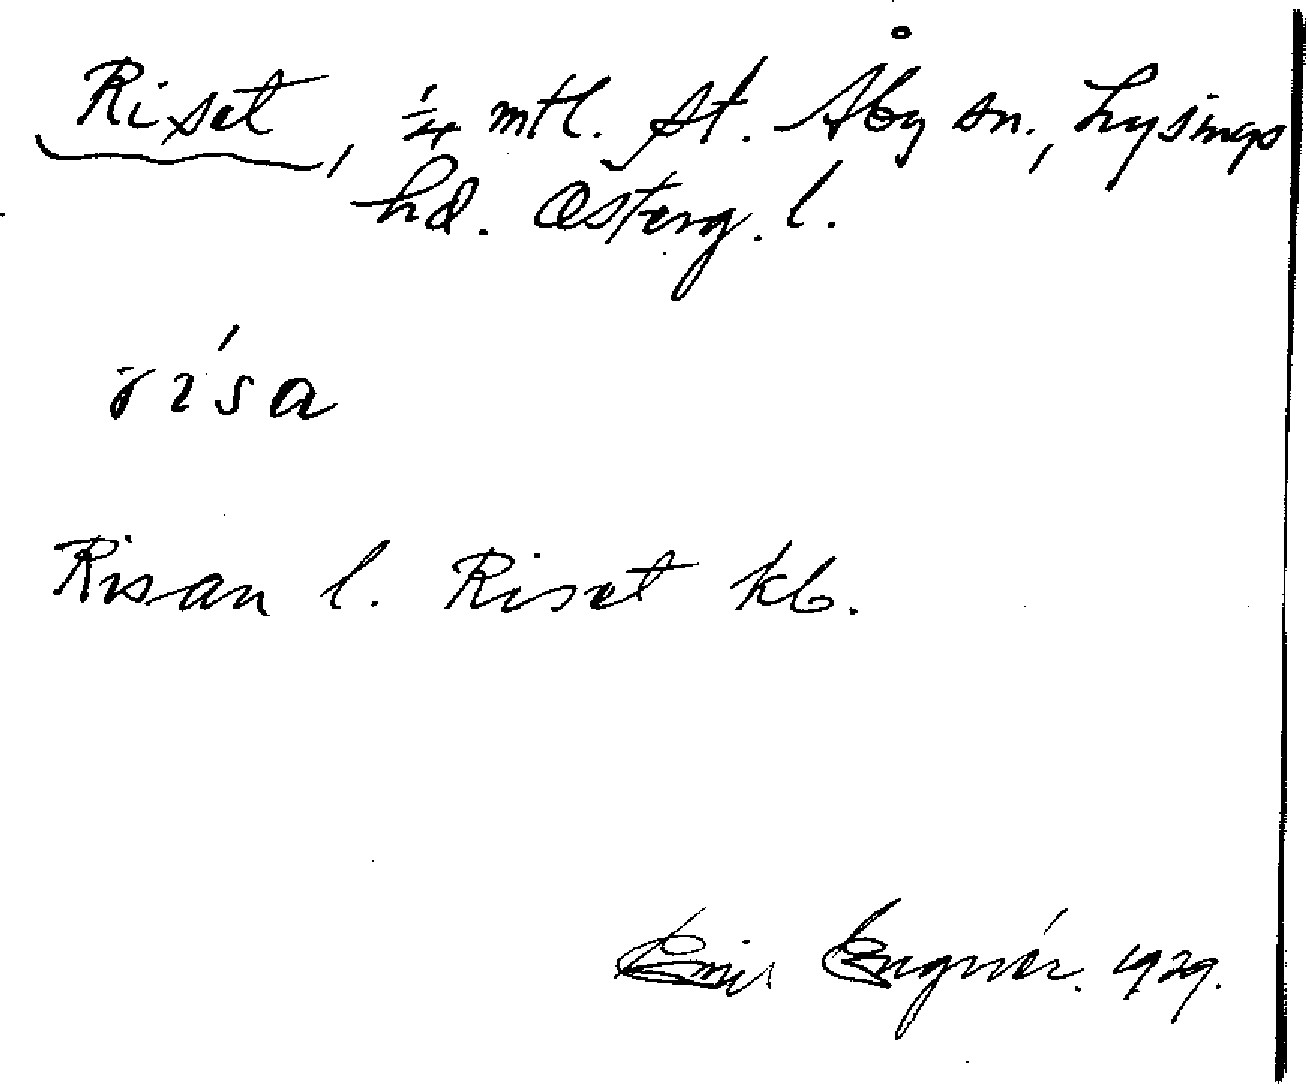 Riset, ¼ mtl. St. Åby sn., Lysings
hd. Österg. l.
ri´sa
Risan l. Riset kb.
Emil Engnér. 1929.